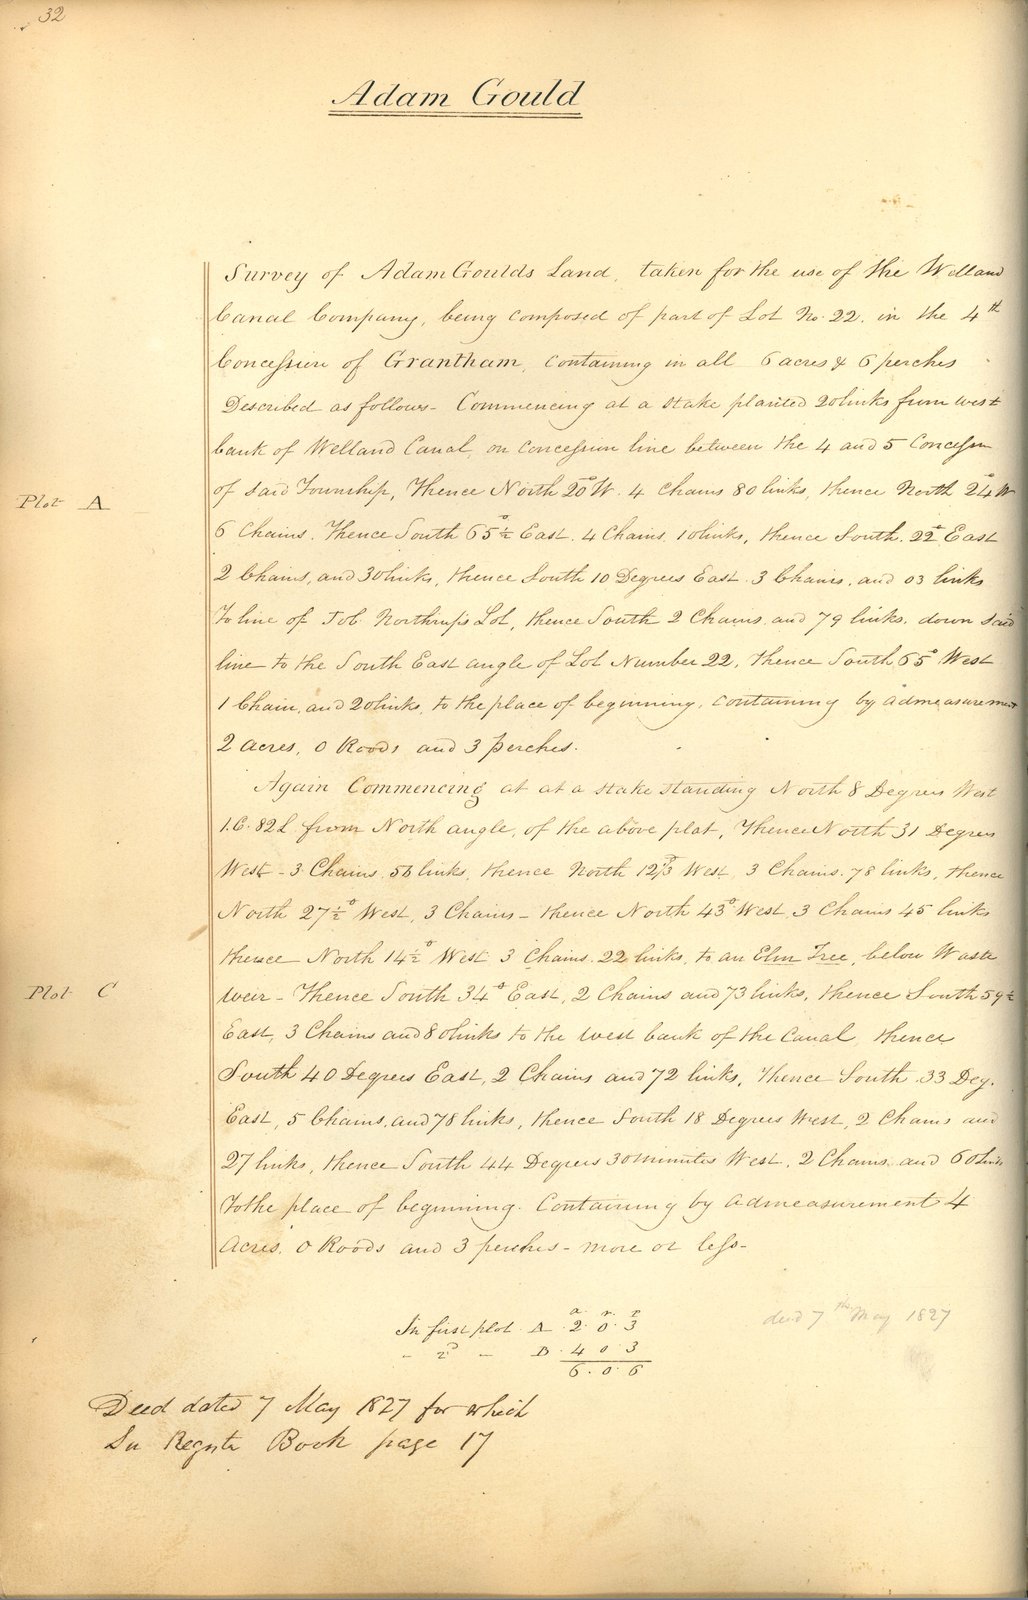 32
Adam Gould
Survey of Adam Goulds Land, taken for the use of the Welland
Canal Company, being composed of part of Lot No. 22. in the 4th
Concession of Grantham, containing in all 6 acres & 6 perches
Described as follows - Commencing at a stake planted 20 links from west
bank of Welland Canal, on concession line between the 4 and 5 Concession
Plot A
of said Township, Thence North 20° W. 4 Chains 80 links, thence North 24° W
6 Chains. Thence South 65½° East. 4 Chains. 10 links, thence South. 22° East
2 Chains, and 30 links, thence South 10 Degrees East. 3 Chains, and 03 links
To line of Job Northrup's Lot, thence South 2 Chains, and 79 links. down said
line to the South East angle of Lot Number 22, thence South 65° West
1 Chain, and 20 links, to the place of beginning, containing by admeasurement
2 acres, 0 Roods and 3 perches.
Again Commencing at at a stake standing North 8 Degrees West
1.C. 82 L. from North angle, of the above plat, Thence North 31 Degrees
West - 3 Chains, 50 links, thence North 12 West, 3 Chains. 78 links, thence
North 27½° West, 3 Chains - thence North 43° West, 3 Chains 45 links
thence North 14½° West 3 Chains. 22 links, to an Elm Tree, below Waste
Plot C
weir - Thence South 34° East, 2 Chains and 73 links, thence South 59°
East, 3 Chains and 80 links to the west bank of the Canal, thence
South 40 Degrees East, 2 Chains and 72 links, Thence South 33 Deg.
East, 5 Chains, and 78 links, thence South 18 Degrees West, 2 Chains and
27 links, thence South 44 Degrees 30 minutes West, 2 Chains and 60 links
To the place of beginning. Containing by admeasurement 4
Acres, 0 Roods and 3 perches - more or less -
a. r. p
In first plot A 2. 0. 3
- 2D - B. 4 0 3
6. 0. 6
deed 7th May 1827
Deed dated 7 May 1827 for which
See Register Book page 17